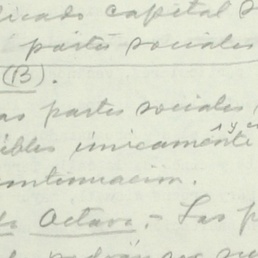 licado capital s
partes sociales
(13).
as partes sociales
ibles únicamente y e
ontinuación.
do Octavo.- Las p